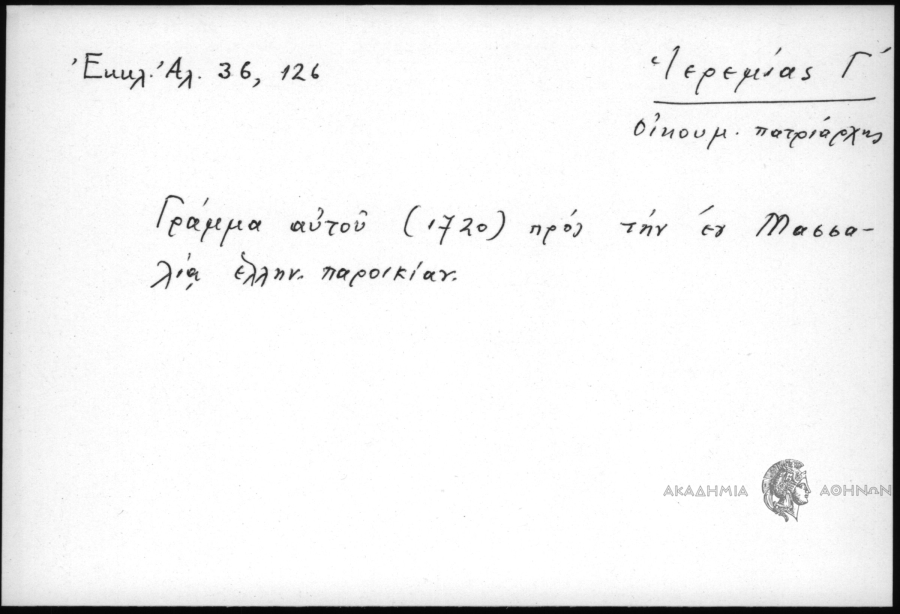 Ἐκκλ. Ἀλ. 36, 126
Ἱερεμίας Γ΄
οἰκουμ. πατριάρχης
Γράμμα αὐτοῦ (1720) πρός τήν ἐν Μασσα-
λίᾳ ἑλλην. παροικίαν.
ΑΚΑΔΗΜΙΑ ΑΘΗΝΩΝ